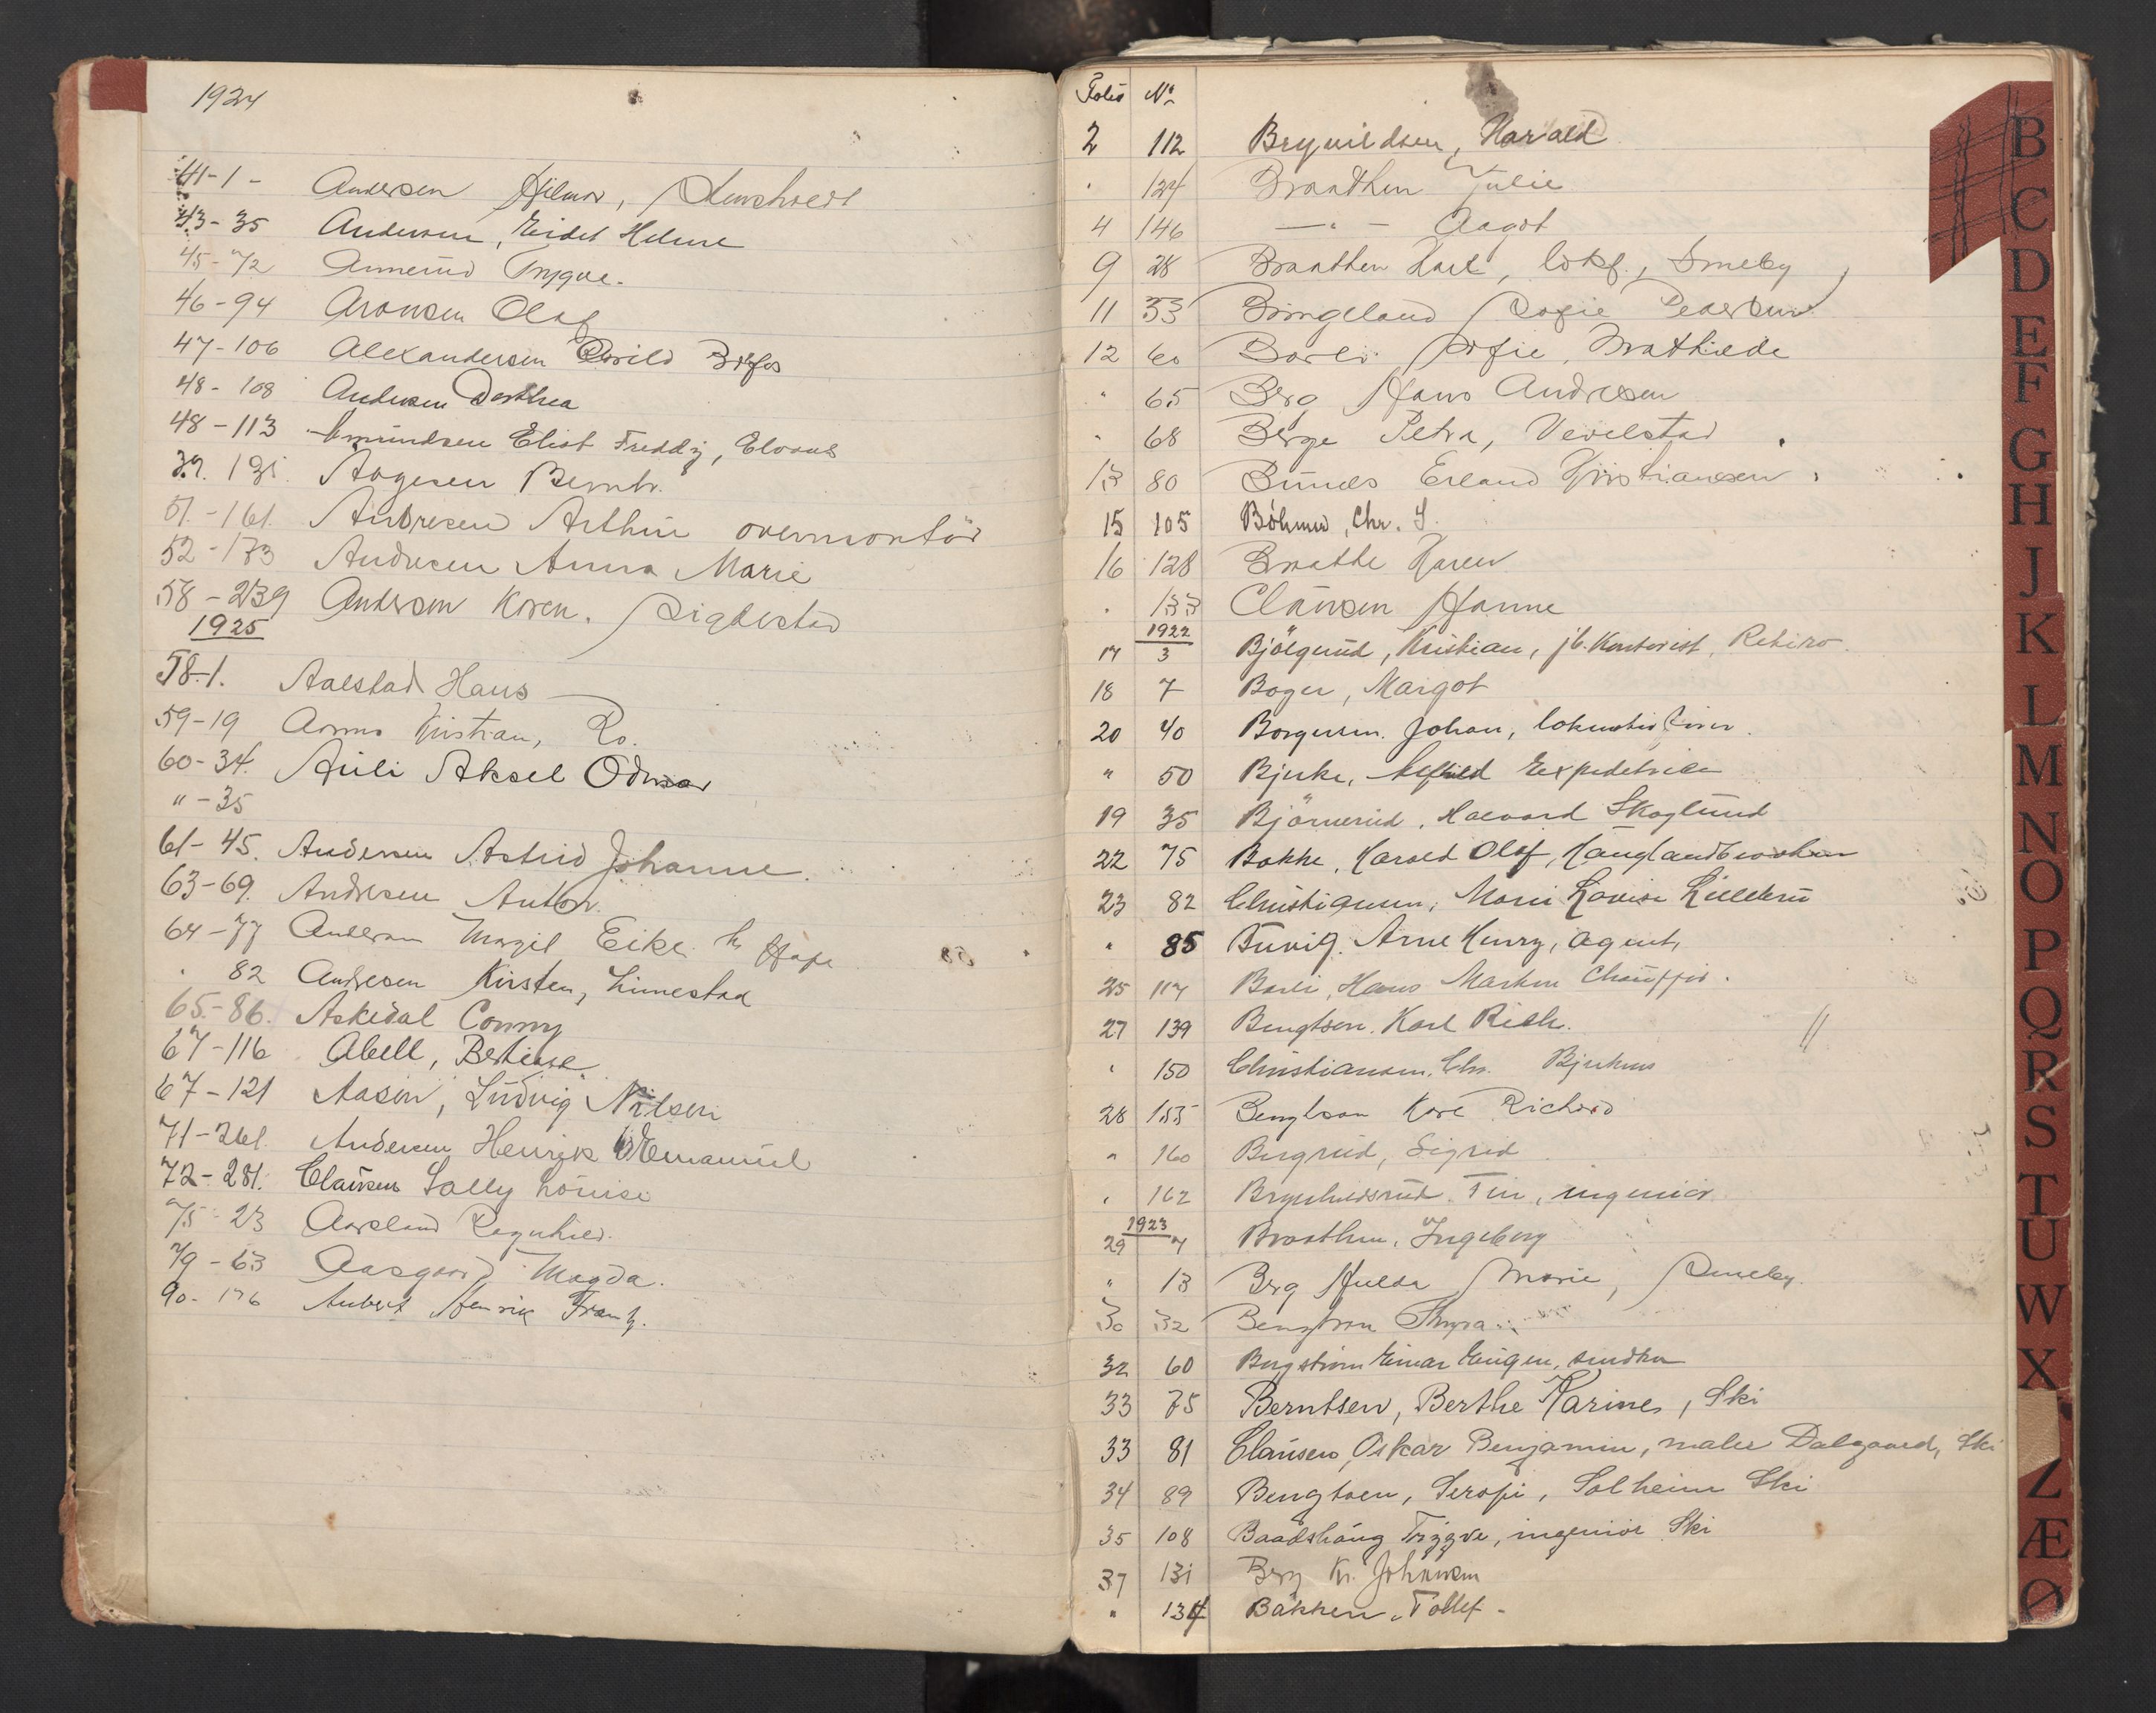 1924
41-1- Andersen Hilmar,
43-35 Andersen, Eidel Helene
45-72 Annerud Trygve.
46-94 Aronsen Olaf
47-106 Alexandersen
48-108 Andersen Dorthea
48-113 Amundsen Elist Freddy,
39. 131. Aagesen Berntz.
51.-161. Andresen Arthur overmontör
52-173 Andresen Anna Marie
58-239 Anderson Karen.
1925
58-1. Aalstad Hans
59-19 Aamo Kristian, Ro.
60-34. Auli Aksel Odmar
"-35
61-45. Andersen Astrid Johanne.
63-69. Andresen Anton.
64-77 Anderson Margit Eike
" 82 Andresen Kirsten, Limestad
65.-86. Askedal Conny
67-116 Abell, Bertine
67-121 Aasen, Ludvig Nilsen
71-261. Andersen Henrik Emanuel
72-281. Clausen Sally Louise
75-23 Aarsland Ragnhild.
79-63 Aasgaard Magda.
90-176 Aubert Henrik Frantz.
Folio No
2 112 Brynildsen, Harald
" 124 Braathen Julie
4 146 — " — Aagot
9 28 Braathen Karl, lokf., Smeby
11 53 Bringeland Sofie Pedersen
12 60 Sofie Mathilde
" 65 Berg Hans Andresen
" 68 Berge Petra, Vevelstad
13 80 Erland Kristiansen
15 105 Böhmer, Chr. S.
16 128 Braathe Karen
" 133 Clausen Hanne
1922
17 3 Bjölgerud, Kristian, jb. Kontorist, Retiro.
18 7 Boger, Margot
20 40 Borgersen. Johan,
" 50 Bjerke, Alfhild Expeditrice
19 35 Björnerud, Haavard Skoglund
22 75 Bakke, Harald Olaf,
23 82 Christiansen, Marie Lovise
" 85 Arne Henry, agent,
25 117 Barli, Hans Martin Chauffør.
27 139 Bengtson. Karl Rich.
" 150 Christiansen, Chr. Bjerkeus
28 155 Bengtson Karl Richard
" 160 Bergerud, Sigrid
" 162 Brynhildsrud. Finn, ingeniør
1923
29 7 Braathen, Ingeborg
" 13 Berg Hulda Marie, Smeby.
30 32 Bengtson Thyra
32 60 Bergström Einar Eugen,
33 75 Berntsen, Berthe Karine, Ski
33 81 Clausen, Oskar Benjamin, maler Dalgaard, Ski
34 89 Bengtsen, Serafi, Solheim Ski
35 108 Baadshaug Trygve, ingeniør Ski
37 131 Berg Kr. Johansen
" 134 Bakken, Tollef -
B
C
D
E
F
G
H
J
K
L
M
N
O
P
Q
R
S
T
U
W
X
Z
Æ
Ø